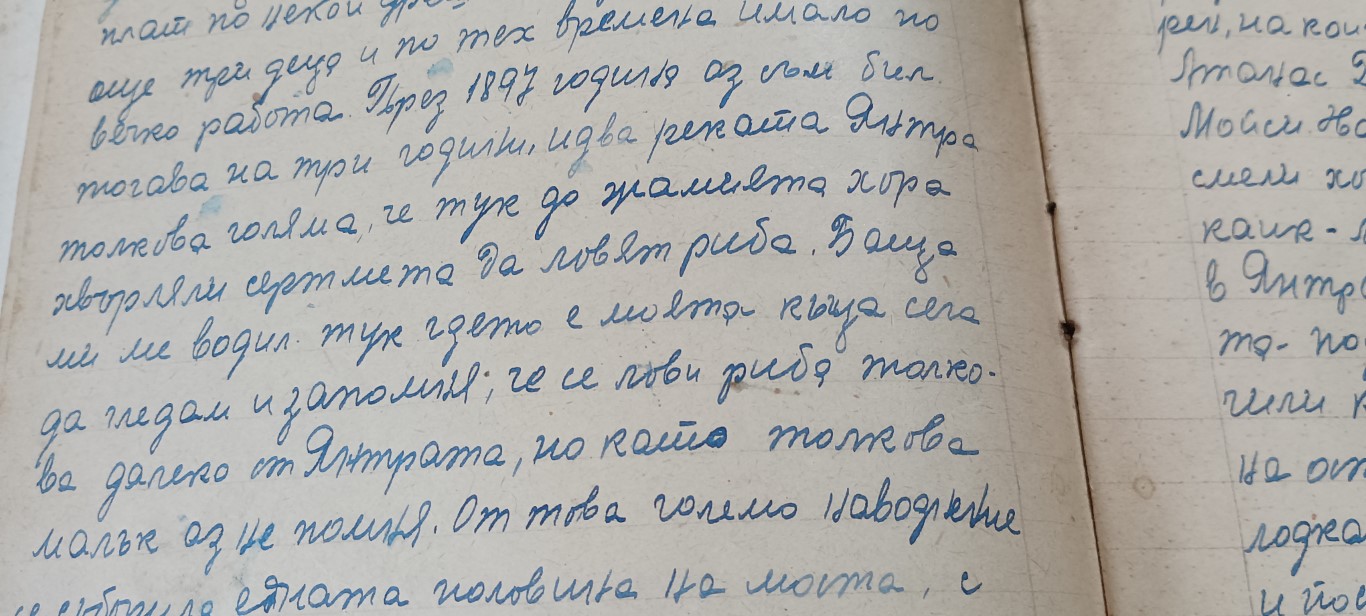 плат по некой
още три деца и по тех времена имало по
вечко работа. През 1897 година аз съм бил
тогава на три години, идва реката Янтра
толкова голяма, че тук до жамията хора
хвърляли сертмета да ловят риба. Баща
ми ме водил. тук гдето е моята къща сега
да гледам и запомня; че се лови риба толко-
ва далеко от Янтрата, но като толкова
малък аз не помня. От това големо наводнение
се съборила едната половина на моста, с
рей, на кои
Атанас
Мойси
смели
каик -
в Янтра
та - по
чили
на
лодка
и